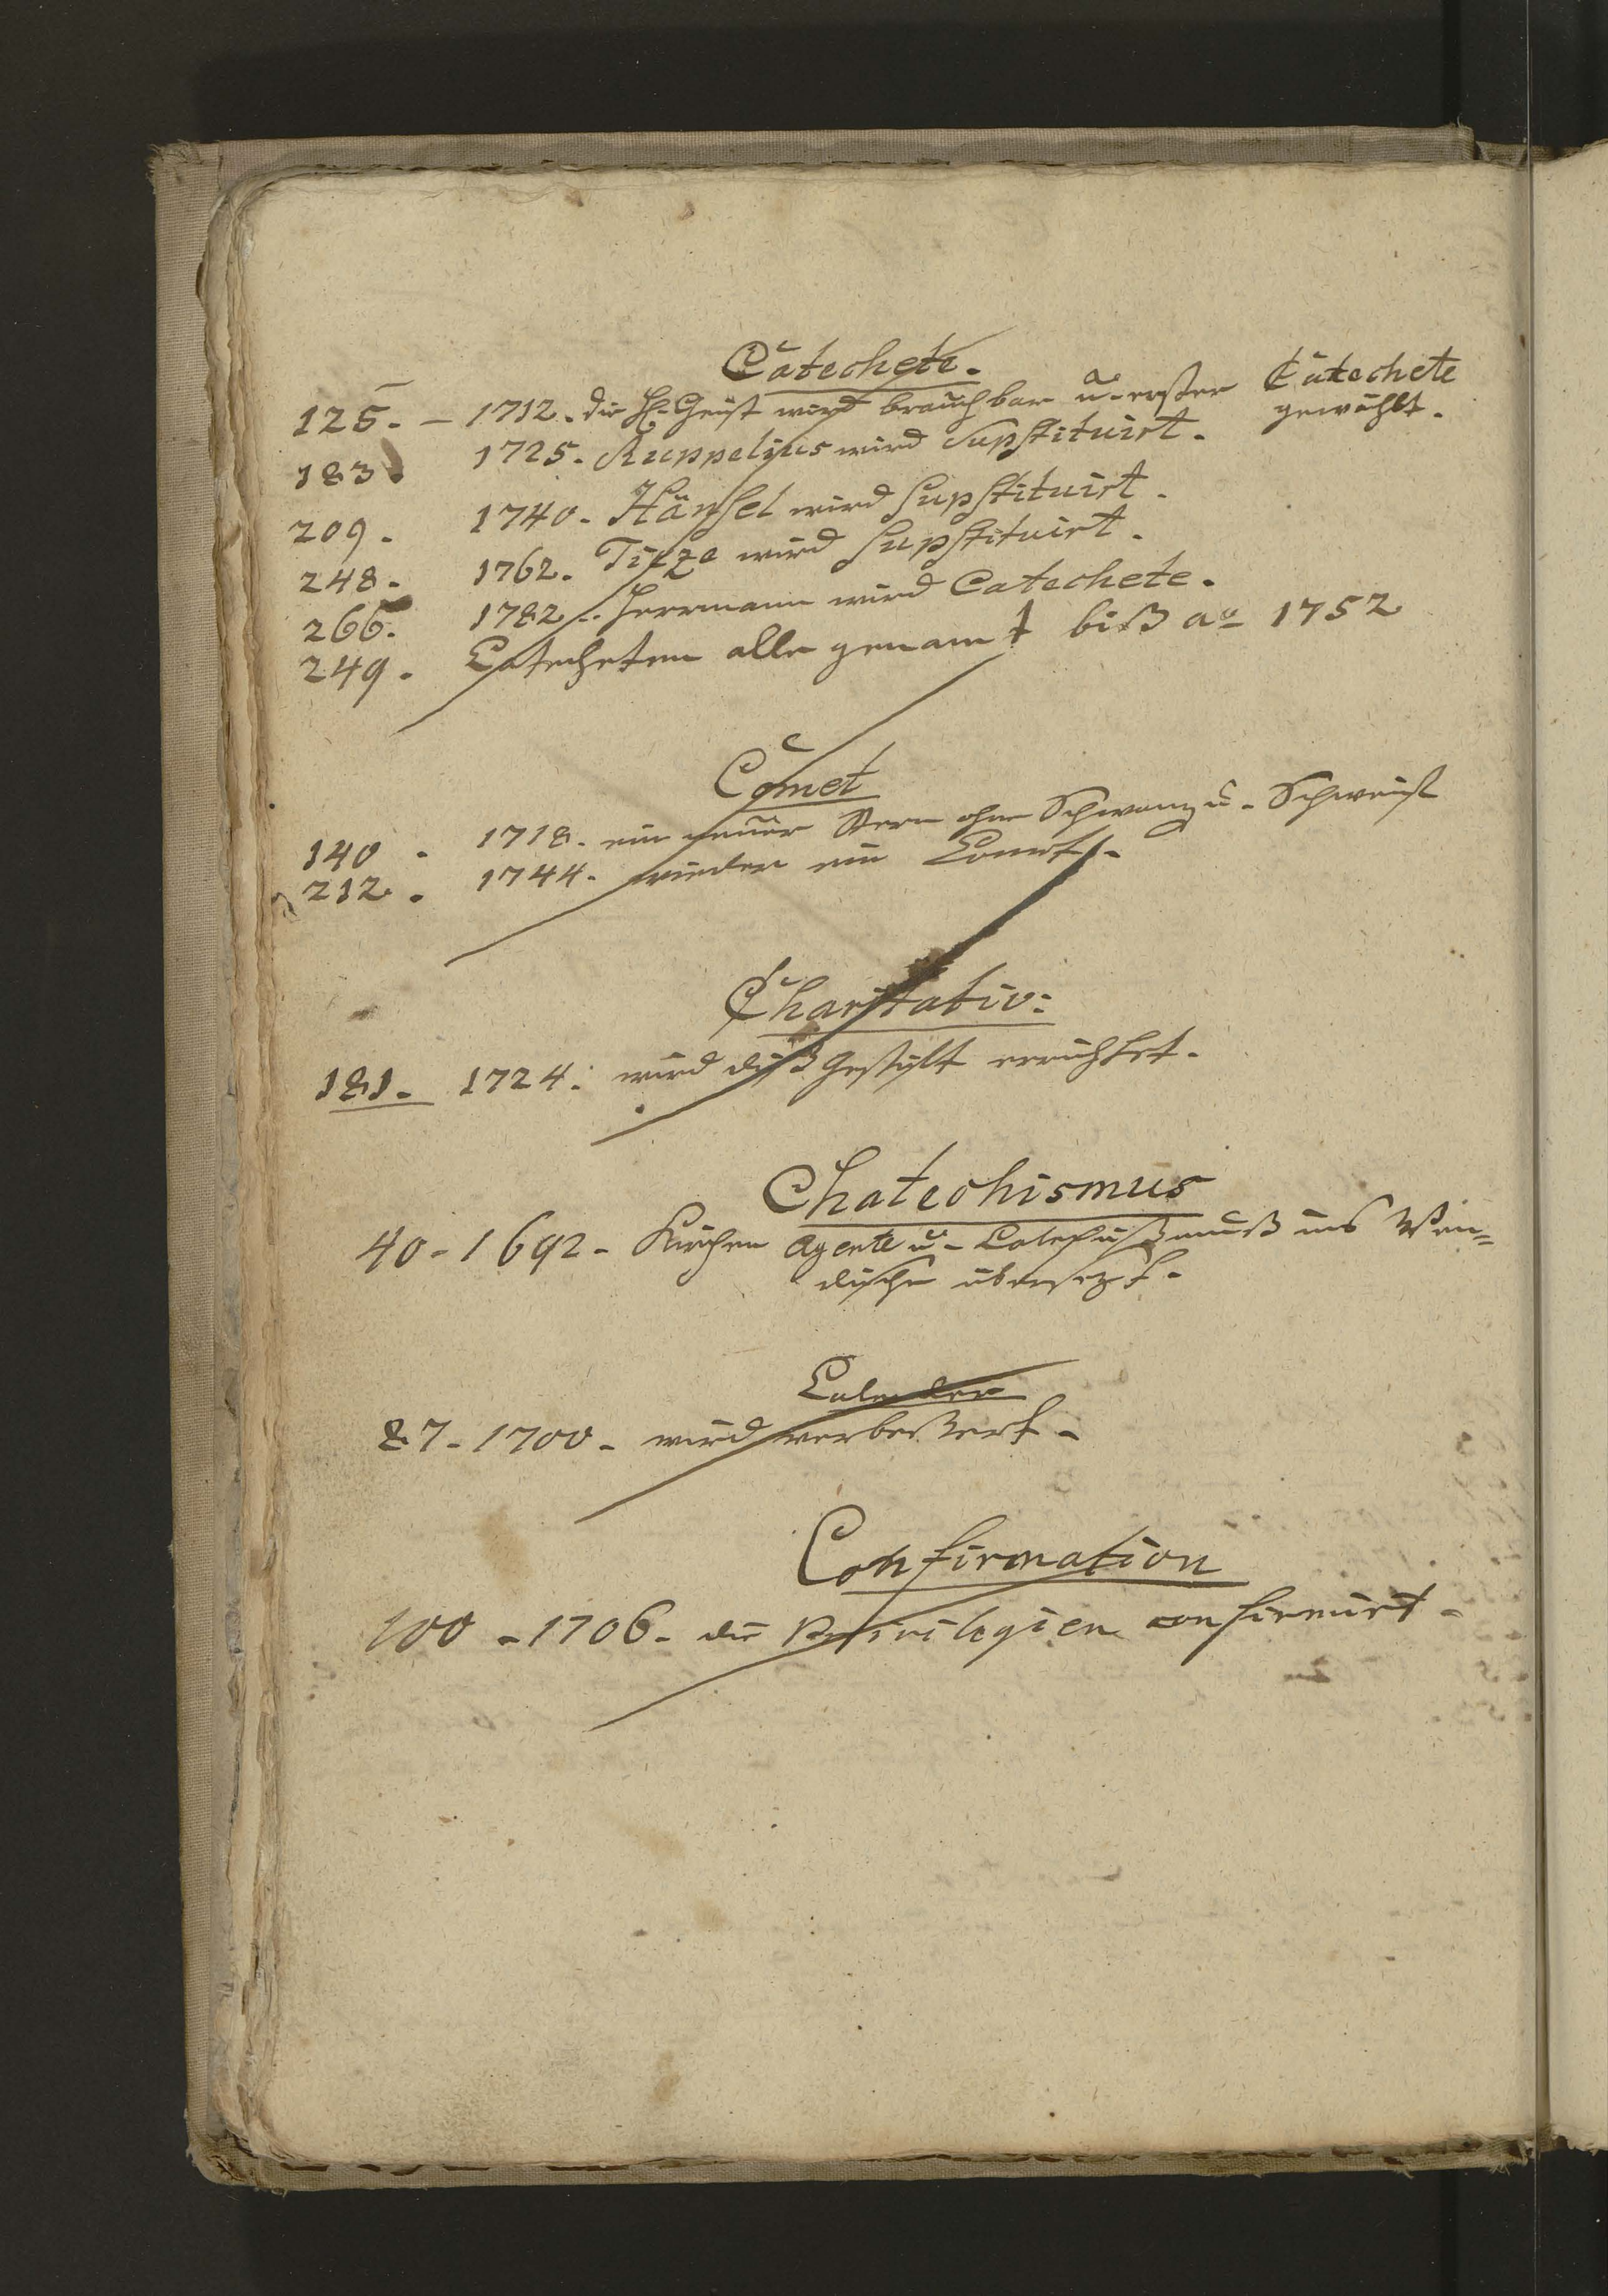 Catechete.
125. – 1712. die H. Geist wird brauchbar u. erster Catechete
gewählt.
183. 1725. Ruppelius wird Supstituirt.
209. 1740. Hänsel wird Supstituirt.
248. 1762. Tizze wird Supstituirt.
266. 1782. Herrmann wird Catechete.
249. Catecheten alle genant biß ao 1752
Comet
140. 1718. ein neuer Stern ohne Schwanz u. Schweift
212. 1744. wieder ein Comet.
Charitativ:
181. 1724: wird diß Gestift errichtet.
Chatechismus
40 - 1692 - Kirchen Agente u. Catechißmuß ins Wen=
dische übersezt.
Calender
87 - 1700 - wird verbeßert.
Confirmation
100 - 1706 - die Privilegien confirmirt -